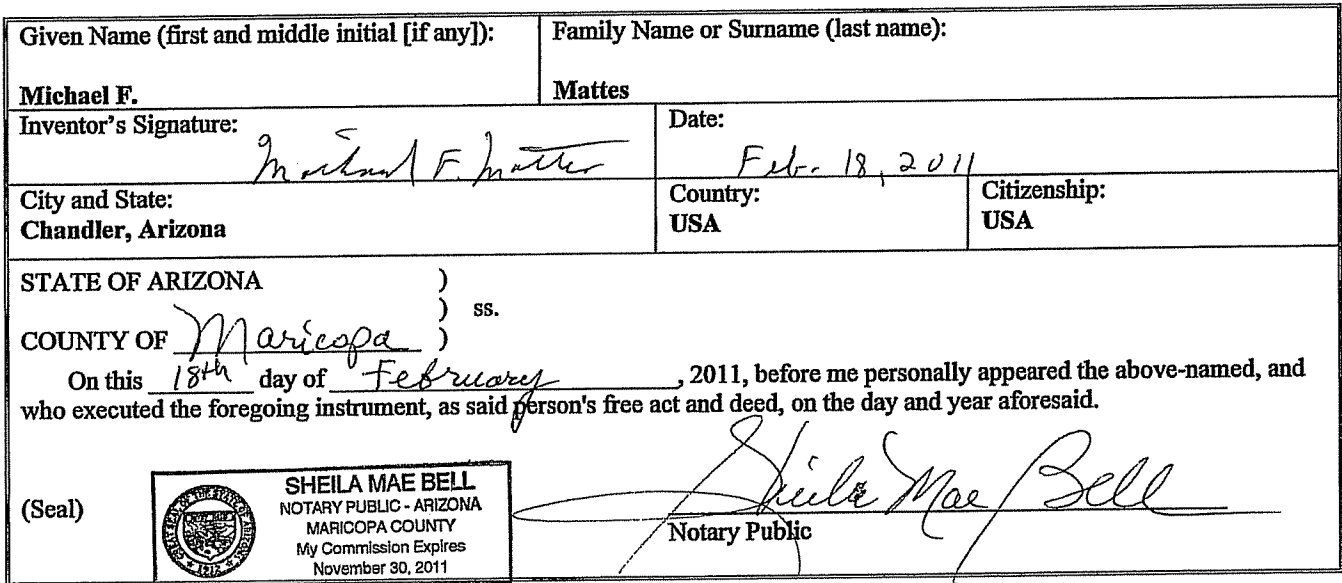 Given Name (first and middle initial [if any]): Family Name or Surname (last name):
Michael F. Mattes
Inventor's Signature: Date:
Michael F. Mattes Feb. 18, 2011
City and State: Country: Citizenship:
Chandler, Arizona USA USA
STATE OF ARIZONA )
) ss.
COUNTY OF Maricopa )
On this 18th day of February, 2011, before me personally appeared the above-named, and
who executed the foregoing instrument, as said person's free act and deed, on the day and year aforesaid.
(Seal)
GREAT SEAL OF THE STATE OF ARIZONA
1912
SHEILA MAE BELL
NOTARY PUBLIC - ARIZONA
MARICOPA COUNTY
My Commission Expires
November 30, 2011
Sheila Mae Bell
Notary Public